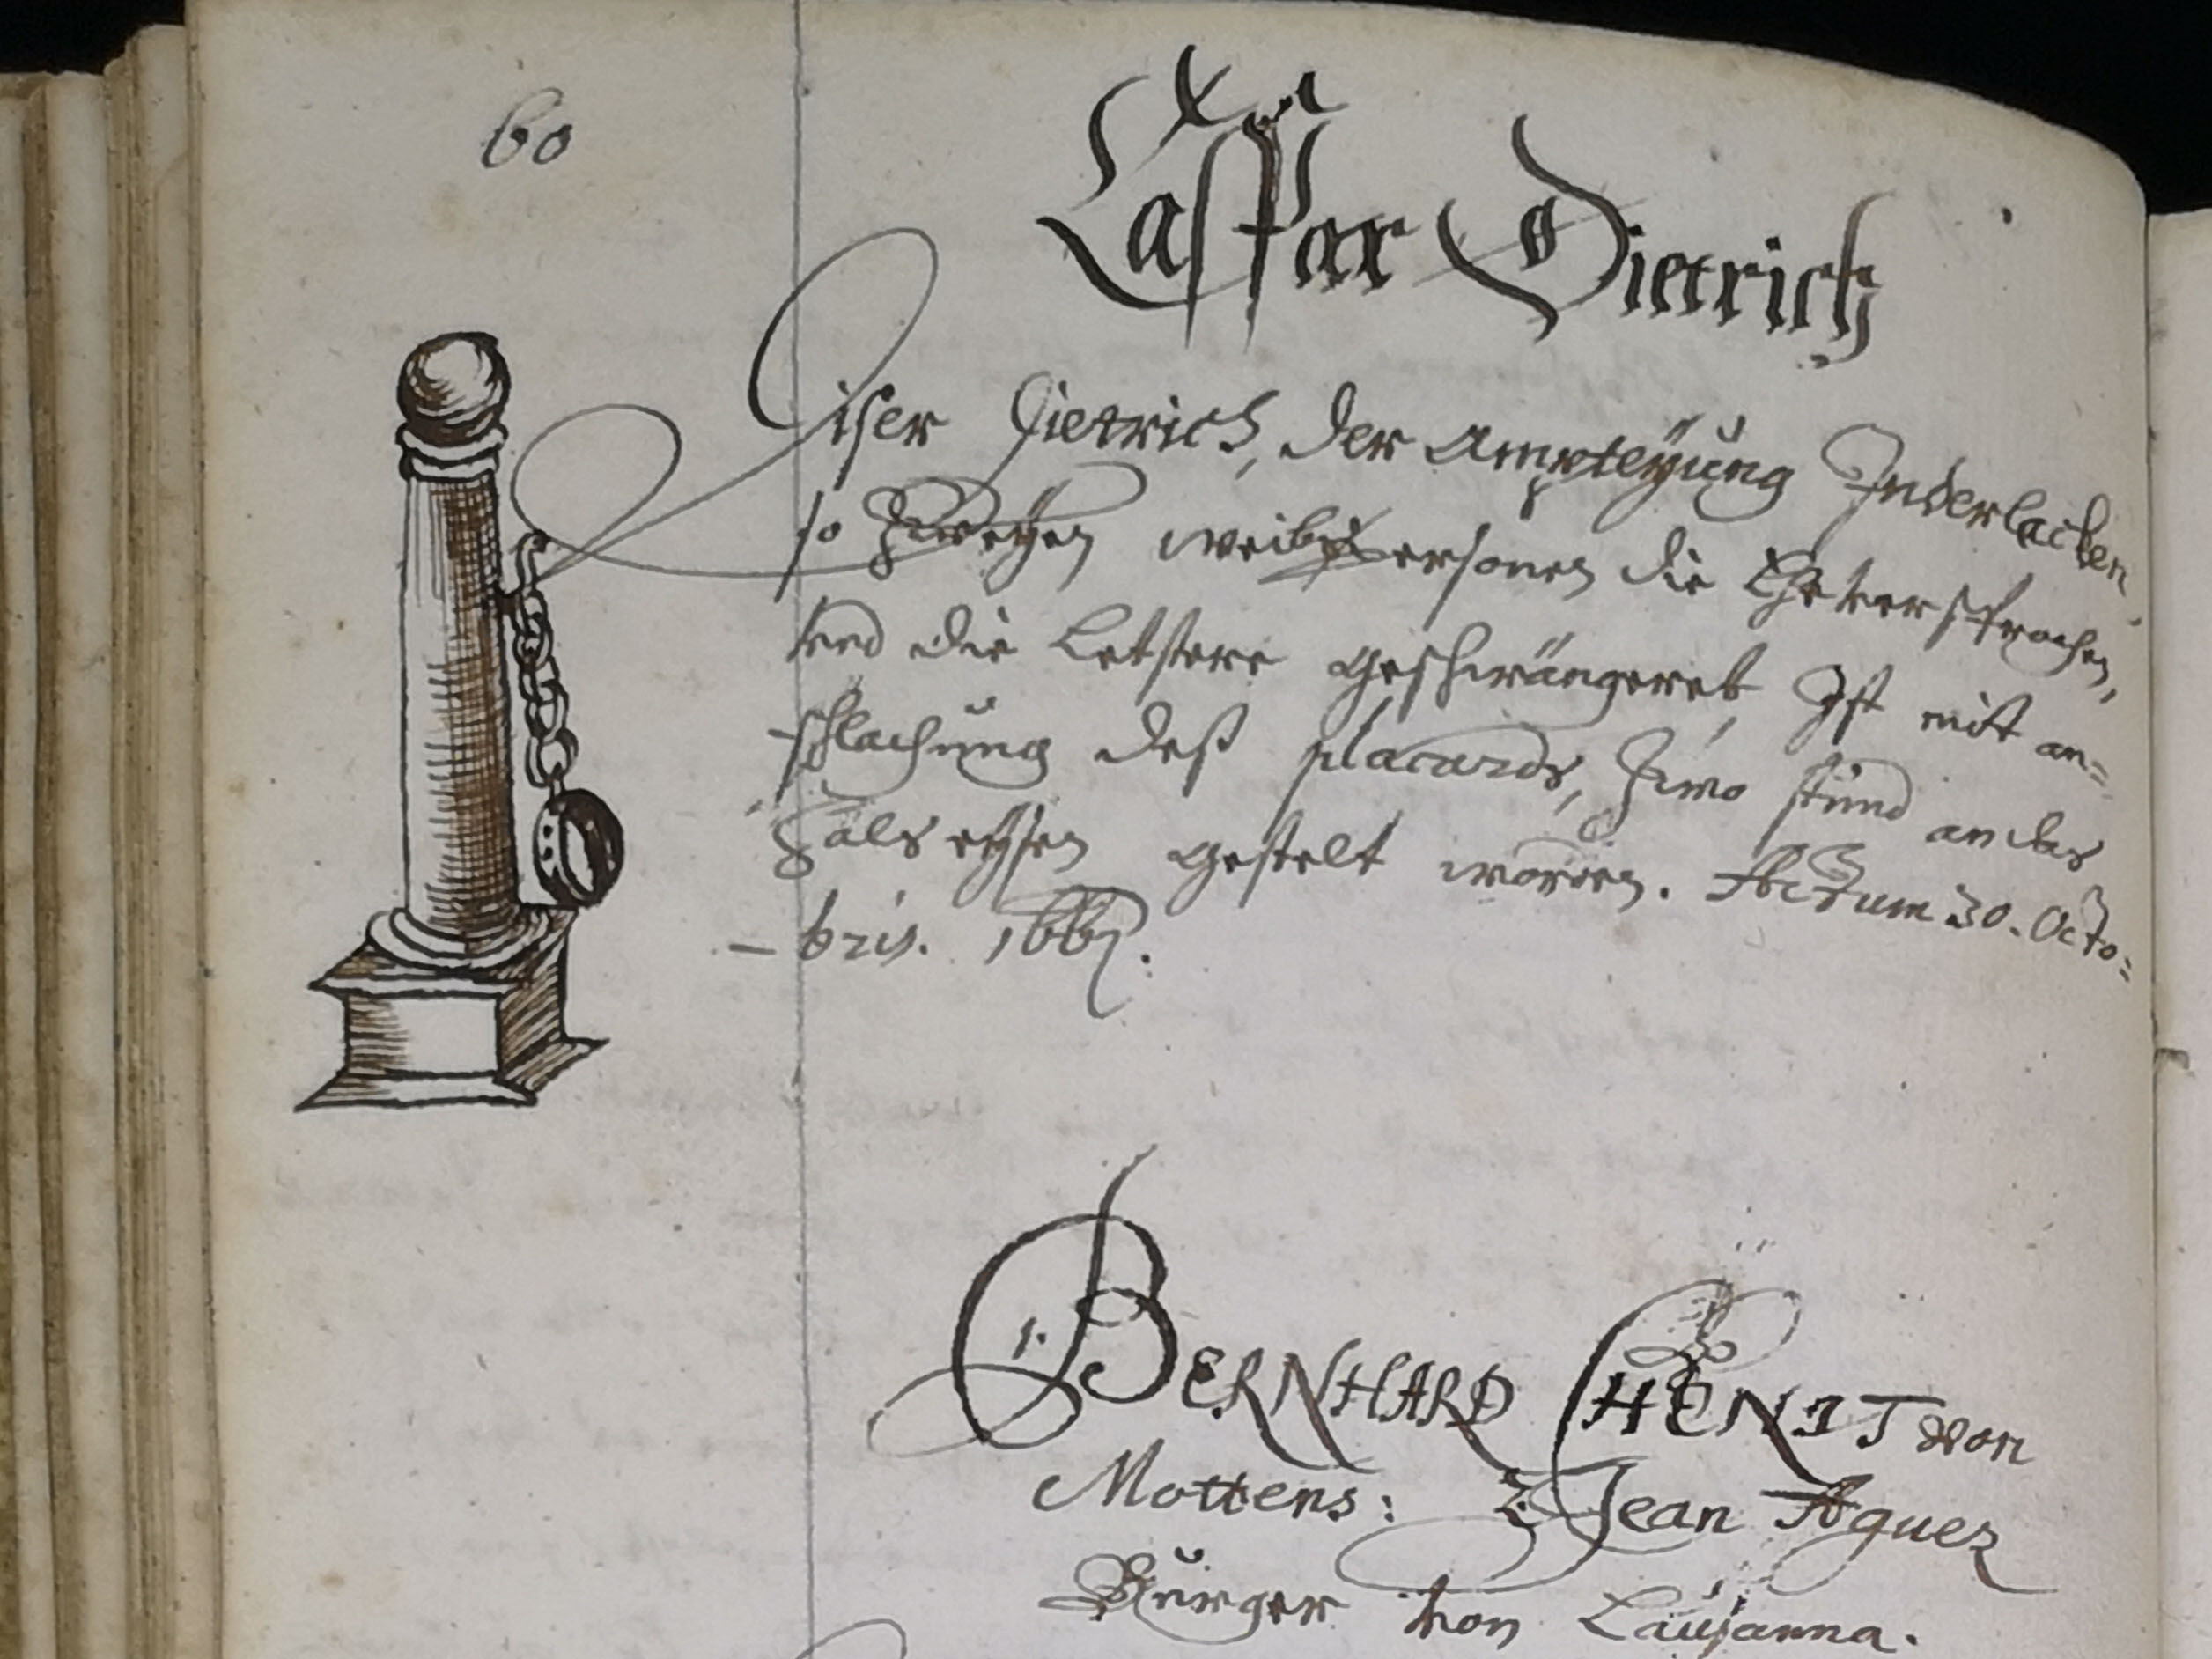 60
Caspar Dietrich
Diser Dietrich, der Ampteyung Inderlacken,
so Zweyen weibspersonen die Ehe versprochen,
und die Letstere geschwängeret, Ist mit an=
schlachung deß placards, Zwo stund an das
Halseysen gestelt worden. Actum 30. Octo=
- bris. 1667.
1. BERNHARD CHENIT von
Mottens: 2. Jean Aguez
Burger von Lausanna.